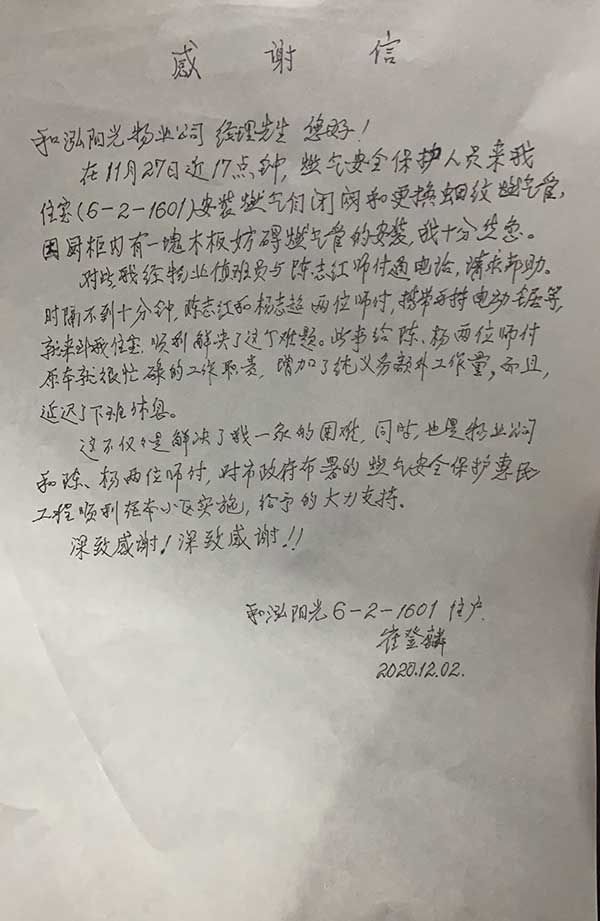 感谢信
和泓阳光物业公司 经理先生 您好！
在11月27日近17点钟，燃气安全保护人员来我
住室(6-2-1601)安装燃气自闭阀和更换蝈纹燃气管，
因厨柜内有一塊木板妨碍燃气管的安装，我十分焦急。
对此我经物业值班员与陈志红师付通电话，请求帮助。
时隔不到十分钟，陈志红和杨志超两位师付，携带手持电动工具等，
就来到我住室，顺利解决了这个难题。此事给陈、杨两位师付
原本就很忙碌的工作职责，增加了纯义务额外工作量，而且，
延迟了下班休息。
这不仅仅是解决了我一家的困难，同时，也是物业公司
和陈、杨两位师付，对市政府布署的燃气安全保护惠民
工程顺利在本小区实施，给予的大力支持。
深致感谢！深致感谢！！
和泓阳光6-2-1601住户
崔登麟
2020.12.02.